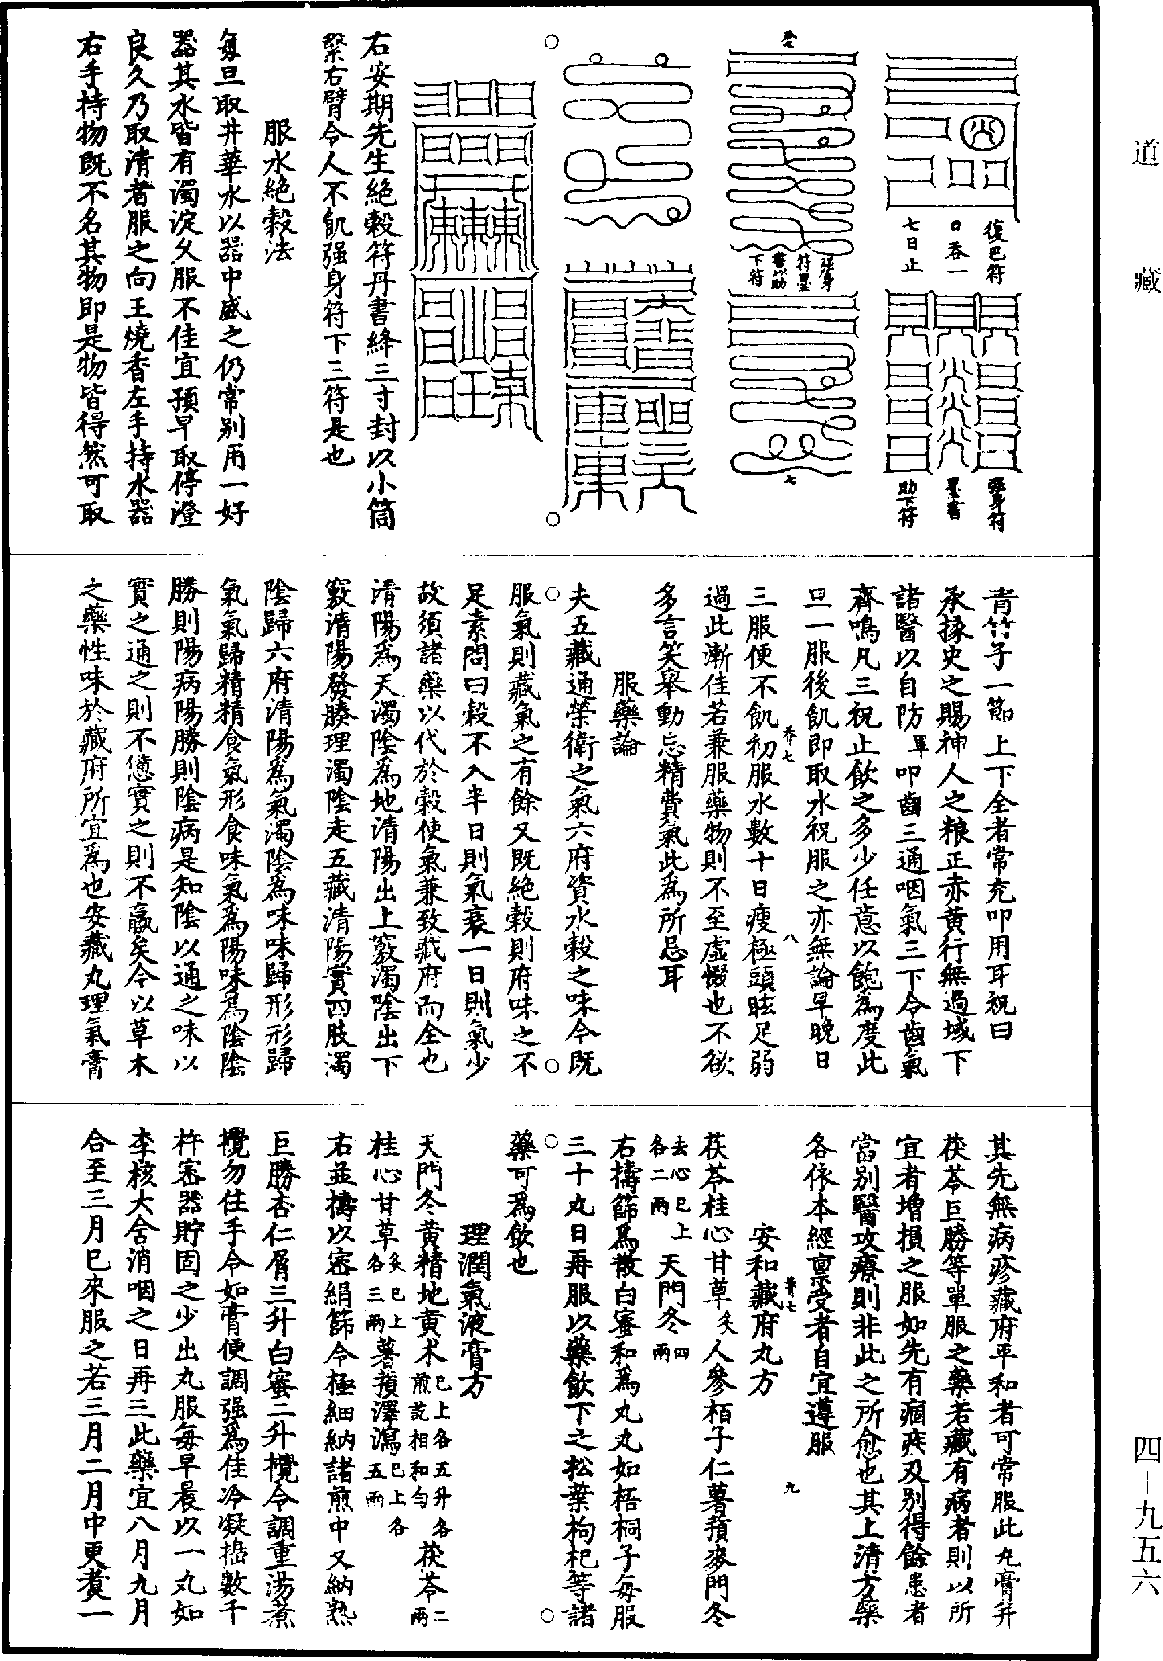 道藏
四—九五六
復巴符
口吞一
七日止
強身符
墨書
助下符
卷七
強身
符墨
書以助
下符
七
右安期先生絕穀符丹書絳三寸封以小筒
繫右臂令人不飢强身符下三符是也
服水絕穀法
每旦取井華水以器中盛之仍常别用一好
器其水皆有濁淀久服不佳宜預早取停澄
良久乃取清者服之向王燒香左手持水器
右手持物既不名其物即是物皆得然可取
青竹子一節上下全者常充叩用耳祝曰
承掾史之賜神人之粮正赤黄行無過域下
諸醫以自防畢叩齒三通咽氣三下令齒氣
齊鳴凡三祝止飲之多少任意以飽為度此
旦一服後飢即取水祝服之亦無論早晚日
三服便不飢初服水數十日瘦極頭眩足弱
卷七
八
過此漸佳若兼服藥物則不至虛惙也不欲
多言笑舉動忘精費氣此為所忌耳
服藥論
夫五藏通榮衛之氣六府資水穀之味今既
服氣則藏氣之有餘又既絕穀則府味之不
足素問曰穀不入半日則氣衰一日則氣少
故須諸藥以代於穀使氣兼致藏府而全也
清陽為天濁陰為地清陽出上竅濁陰出下
竅清陽發腠理濁陰走五藏清陽實四肢濁
陰歸六府清陽為氣濁陰為味味歸形形歸
氣氣歸精精食氣形食味氣為陽味為陰陰
勝則陽病陽勝則陰病是知陰以通之味以
實之通之則不憊實之則不羸矣今以草木
之藥性味於藏府所宜為也安藏丸理氣膏
其先無病疹藏府平和者可常服此丸膏并
茯苓巨勝等單服之藥若藏有病者則以所
宜者增損之服如先有痼疾及别得餘患者
當别醫攻療則非此之所愈也其上清方藥
各依本經禀受者自宜遵服
卷七
九
安和藏府丸方
茯苓桂心甘草炙人參栢子仁薯蕷麥門冬
去心已上各二兩天門冬四兩
右擣篩為散白蜜和為丸丸如梧桐子每服
三十丸日再服以藥飲下之松葉枸杞等諸
藥可為飲也
理潤氣液膏方
天門冬黄精地黄术已上各五升各煎訖相和勻茯苓二兩
桂心甘草炙已上各三兩薯蕷澤瀉已上各五兩
右並擣以密絹篩令極細納諸煎中又納熟
巨勝杏仁屑三升白蜜二升攪令調重湯煮
攪勿住手令如膏便調强為佳冷凝搗數千
杵密器貯固之少出丸服每早晨以一丸如
李核大含消咽之日再三此藥宜八月九月
合至三月已來服之若三月二月中更煮一